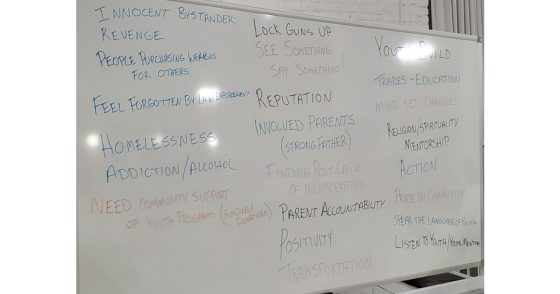 INNOCENT BYSTANDER
REVENGE
PEOPLE PURCHASING WEAPONS
FOR OTHERS
FEEL FORGOTTEN BY LAW ENFORCEMENT
HOMELESSNESS
ADDICTION/ALCOHOL
NEED COMMUNITY SUPPORT
OF YOUTH PROGRAMS (FUNDING/
DONATIONS)
LOCK GUNS UP
SEE SOMETHING
SAY SOMETHING!
REPUTATION
INVOLVED PARENTS
(STRONG FATHER)
FINDING ROOT CAUSE
OF INCARCERATION
PARENT ACCOUNTABILITY
POSITIVITY
TRANSPORTATION
YOUTH BUILD
TRADES-EDUCATION
MIND SET CHANGES
RELIGION/SPIRITUALITY
MENTORSHIP
ACTION
PRIDE IN COMMUNITY
SPEAK THE LANGUAGE OF YOUTH
LISTEN TO YOUTH/YOUTH MENTOR